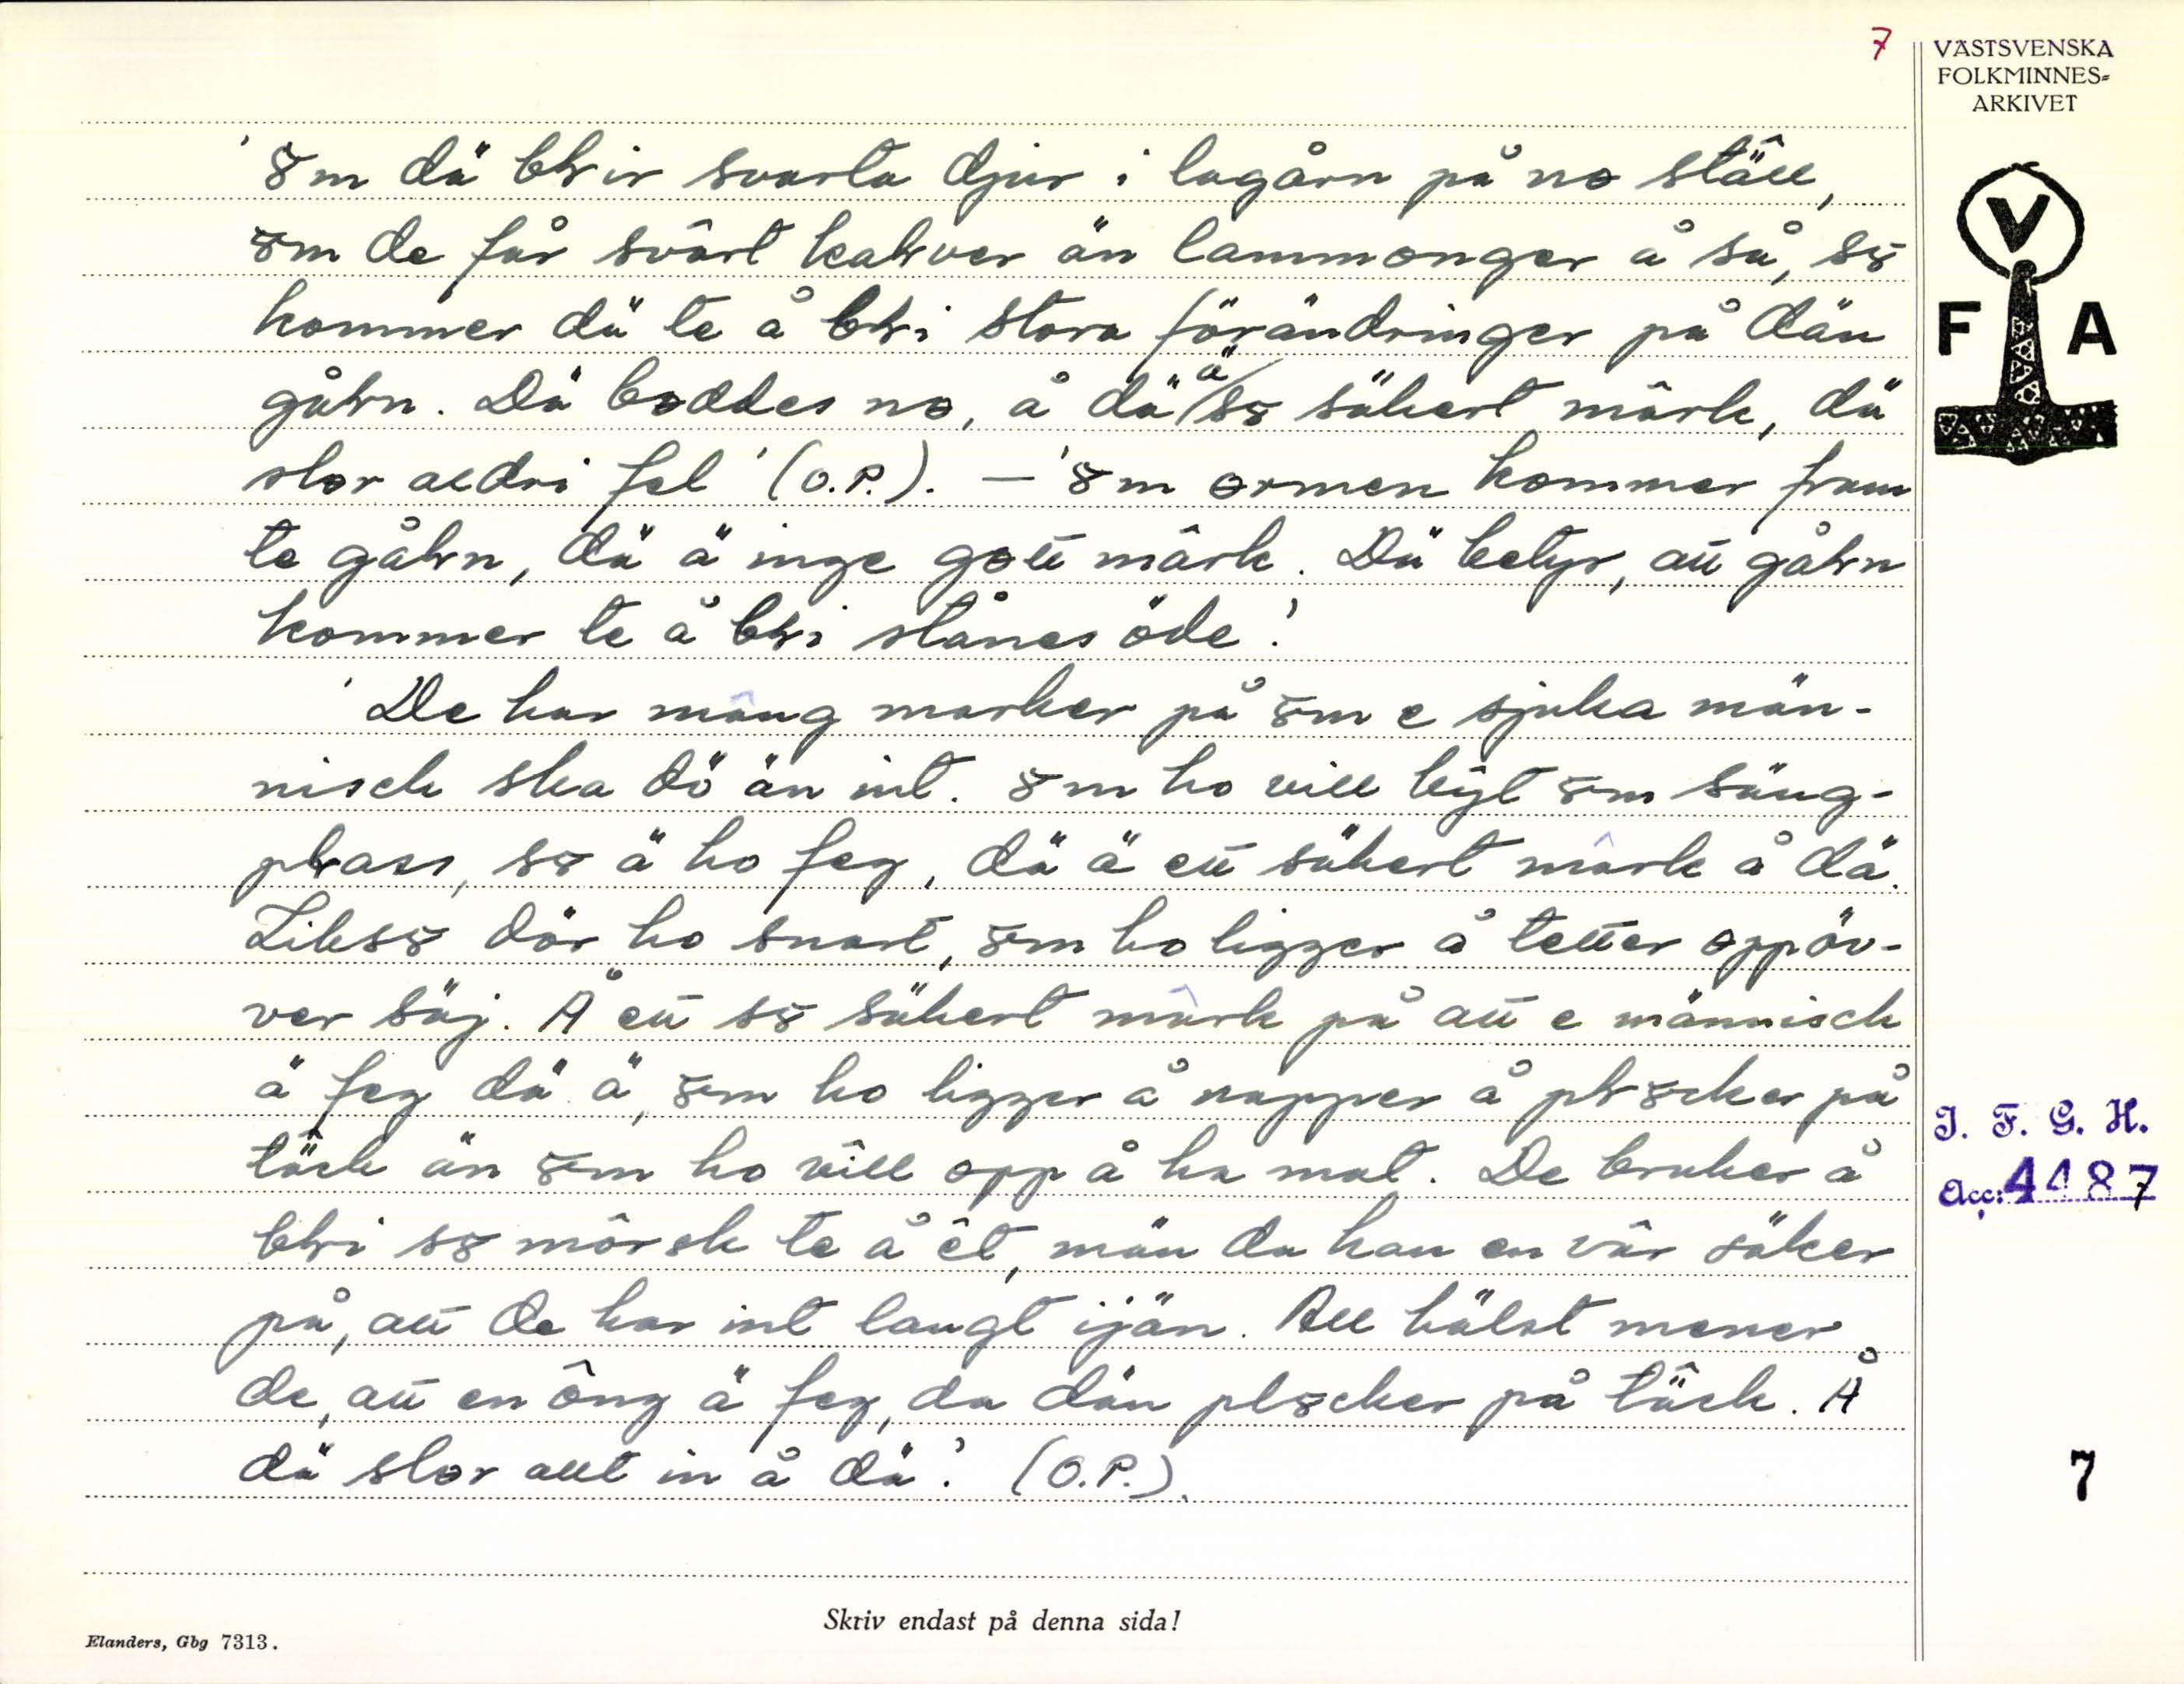 7
VÄSTSVENSKA
FOLKMINNES-
ARKIVET
V
F A
'Ȣm dä błir svarta djur i lagårn på nɷ ställ,
ȣm de får svârt kałver än lammɷnger å så, sȣ
kommer dä te å błi stora förändringer på dän
gåłn. Dä bɷddes nɷ, å dä ä sȣ säkert märk, dä
slɷr alldri fel' (O.P.). — 'Ȣm ɷrmen kommer fram
te gåłn, dä ä inge gɷtt mârk. Dä betyr, att gåłn
kommer te å błi stånes öde.'
'De har mâng marker på ȣm e sjuka män-
nisch ska dö än int. Ȣm ho vill bȳt ȣm säng-
płass, sȣ ä ho feg, dä ä ett säkert mârk å dä.
Liksȣ dör ho snart, ȣm ho ligger å tetter ɷppöv-
ver säj. Å ett sȣ säkert mârk på att e männisch
ä feg dä ä, ȣm ho ligger å napper å płȣcker på
täck än ȣm ho vill ɷpp å ha mat. De bruker å
błi sȣ mörsk te å êt, män da kan en vâr säker
på, att de har int langt ijän. All hälst mener
de, att en ông ä feg, da dän plȣcker på täck. Å
dä slɷr allt in å dä.' (O.P.).
I. F. G. H.
Acc: 4487
7
Skriv endast på denna sida!
Elanders, Gbg 7313.